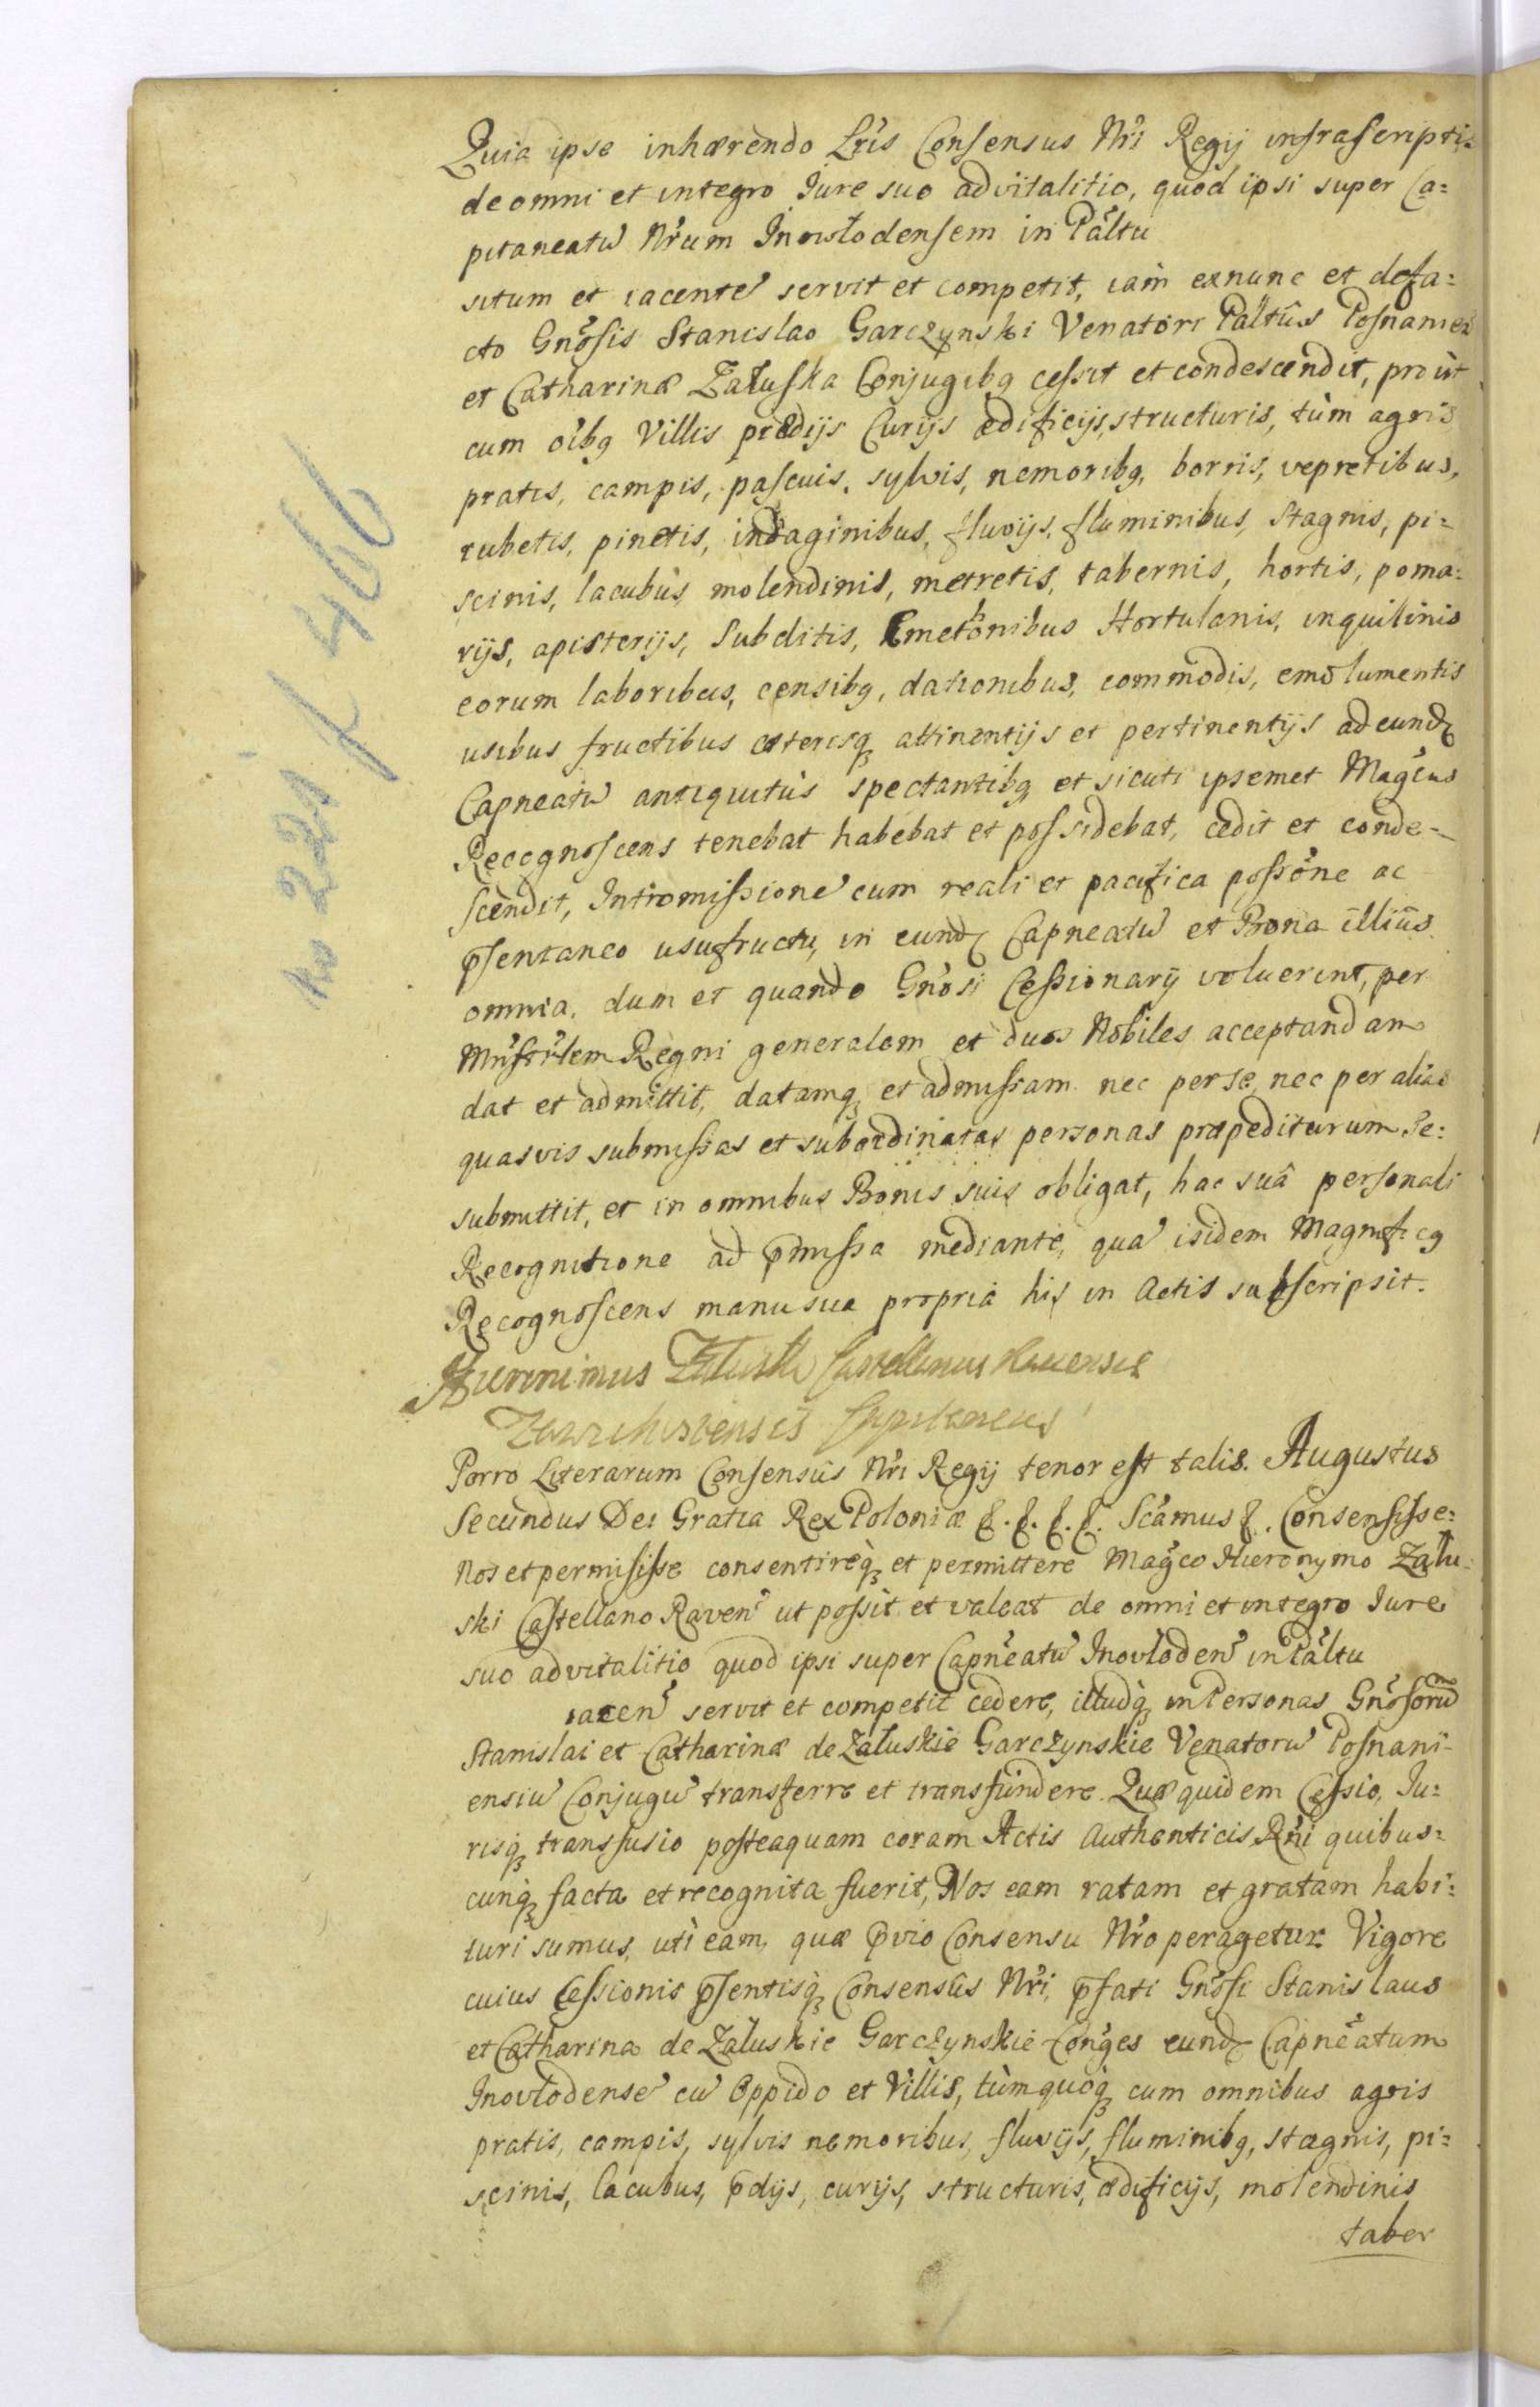 Quia ipse inhærendo Lr̃is Consensus Nr̃i Regij infrascriptis
de omni et integro Jure suo advitalitio, quod ipsi super Ca=
pitaneatũ Nr̃um Inowłodensem in Pãltu
situm et iacentẽ servit et competit, iam exnunc et defa=
cto Gnõsis Stanislao Garczynski Venatori Paltũs Posnanien
et Catharinæ Załuska Conjugibq cessit et condescendit, prout
cum oĩbq Villis prædijs Curijs ædificijs, structuris, tùm agris
pratis, campis, pascuis, sylvis, nemoribq, borris, vepretibus,
rubetis, pinetis, indaginibus, fluvijs, fluminibus, Stagnis, pi=
scinis, lacubus molendinis, metretis, tabernis, hortis, poma=
rijs, apisterijs, Subditis, Cmethonibus Hortulanis, inquilinis
eorum laboribus, censibq, dationibus, commodis, emolumentis
usibus fructibus cæterisq attinentijs et pertinentijs ad eund
Capneatũ antiquitùs spectantibq et sicuti ipsemet Magcus
Recognoscens tenebat habebat et possidebat, cedit et conde=
scendit, Intromissionẽ cum reali et pacifica possõne ac
p̃sentaneo usufructu, in eund Capneatũ et Bona illius
omnia, dum et quando Gnõsi Cessionarij voluerint, per
Mnistr̃lem Regni generalem et duos Nobiles acceptandam
dat et admittit, datamq et admissam nec per se, nec per alias
quasvis submissas et subordinatas personas præpediturum Se=
submittit, et in omnibus Bonis suis obligat, hac suâ personali
Recognitione ad p̃missa mediante, qua isidem Magnificq
Recognoscens manu sua propria his in Actis subscripsit.
Hieronimus Załuski Castellanus Rauensis
Zawichostensis Capitaneus
Porro Literarum Consensûs Nr̃i Regij tenor est talis. Augustus
Secundus Dei Gratia Rex Poloniæ &. &. &. &. Scãmus &. Consensisse=
Nos et permisisse consentireq et permittere Magco Hieronymo Zału=
ski Castellano Raven̛ ut possit et valeat de omni et integro Jure
suo advitalitio quod ipsi super Capneatũ Inovłoden̛ in Pãltu
iacen̛ servit et competit cedere, illudq in Personas Gnõsorũm
Stanislai et Catharinæ de Załuskie Garczynskie Venatorũ Posnani=
ensiũ Conjugũ transferre et transfundere. Quæ quidem Cessio, Ju=
risq transfusio posteaquam coram Actis Authenticis Rñi quibus=
cunq facta et recognita fuerit, Nos eam ratam et gratam habi=
turi sumus, uti eam, quæ p̃vio Consensu Nr̃o peragetur. Vigore
cuius Cessionis p̃sentisq Consensûs Nr̃i, p̃fati Gnõsi Stanislaus
et Catharina de Załuskie Garczynskie Conges eund Capneatum
Inovłodensẽ cũ Oppido et Villis, tùm quoq cum omnibus agris
pratis, campis, sylvis nemoribus, fluvijs, fluminibq, stagnis, pi=
scinis, lacubus, p̃dijs, curijs, structuris, ædificijs, molendinis
taber
No 225 f 466